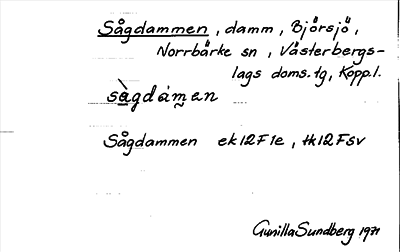 Sågdammen , damm , Björsjö ,
Norrbärke sn , Västerbergs-
lags doms.tg, Kopp.l.
sàgdámen
Sågdammen ek12F1e , tk12Fsv
Gunilla Sundberg 1971